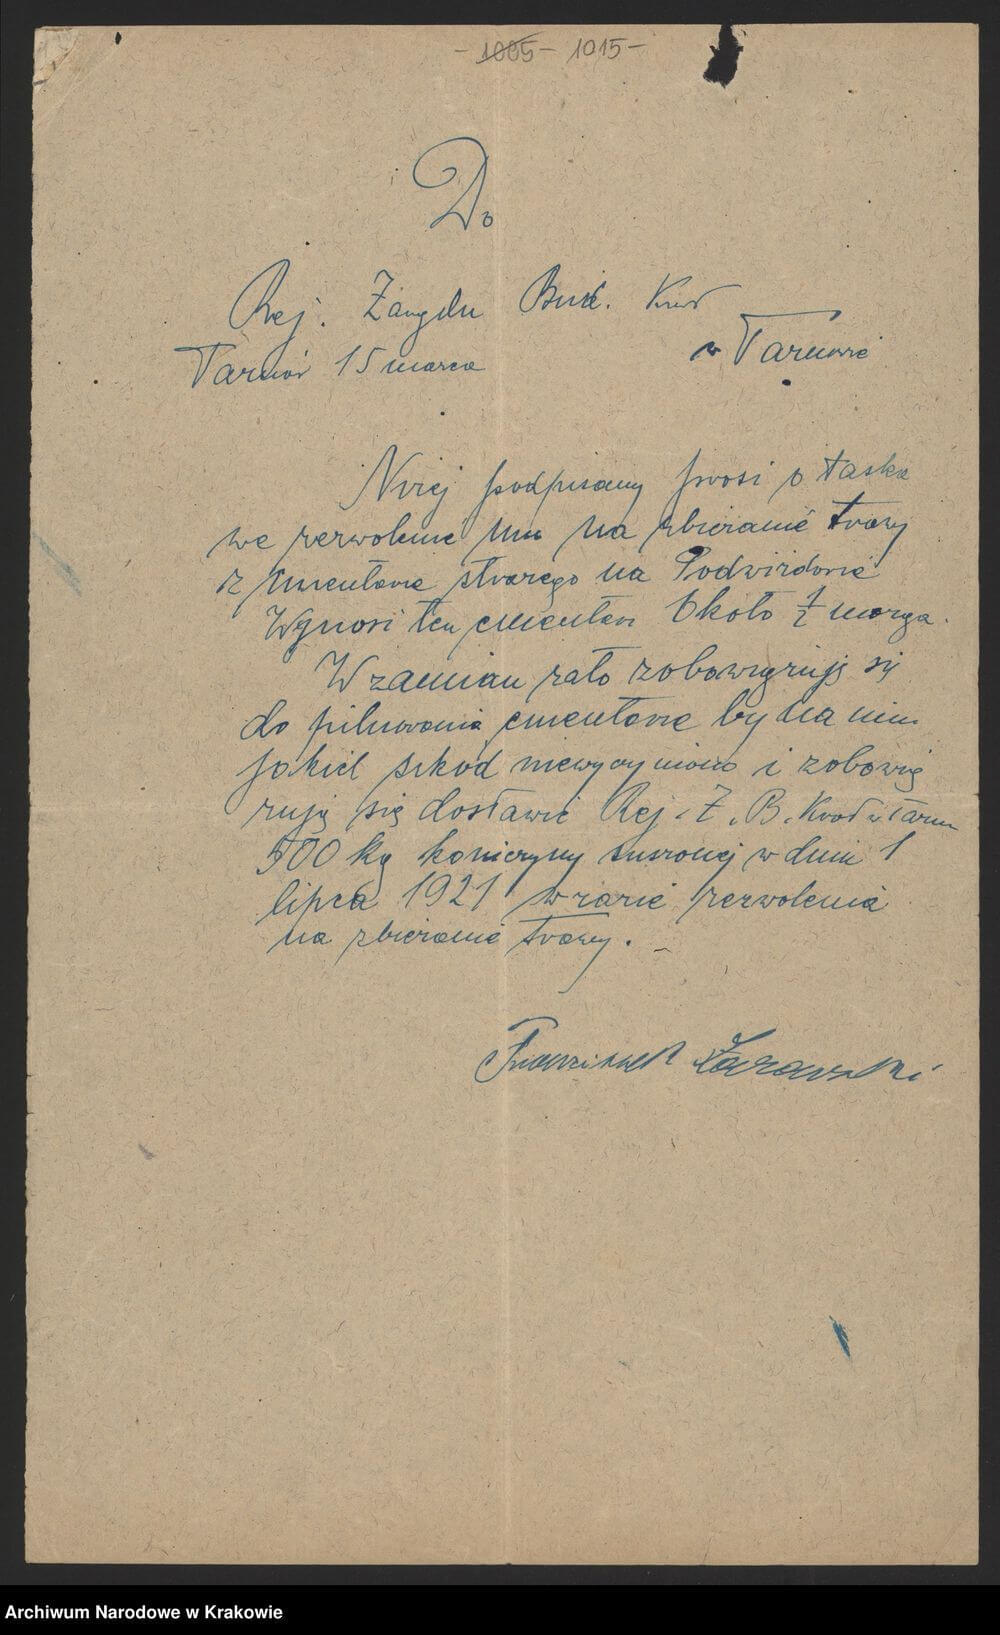 - 1005 - 1015 -
Do
Rej. Zarządu Bud. Kwat
w Tarnowie
Tarnów 15 marca
Niżej podpisany prosi o łaska
we zezwolenie mu na zbieranie trawy
z cmentarza starego na Podwizdowie
Wynosi ten cmentarz Około ½ morga.
W zamian zato zobowięzuję się
do pilnowania cmentarza by na nim
jakich szkod niewyczyniono i zobowię
zuję się dostawić Rej. Z. B. Kwat w Tarn
500 kg koniczyny suszonej w dniu 1
lipca 1921 w razie zezwolenia
na zbieranie trawy.
Franciszek
Archiwum Narodowe w Krakowie